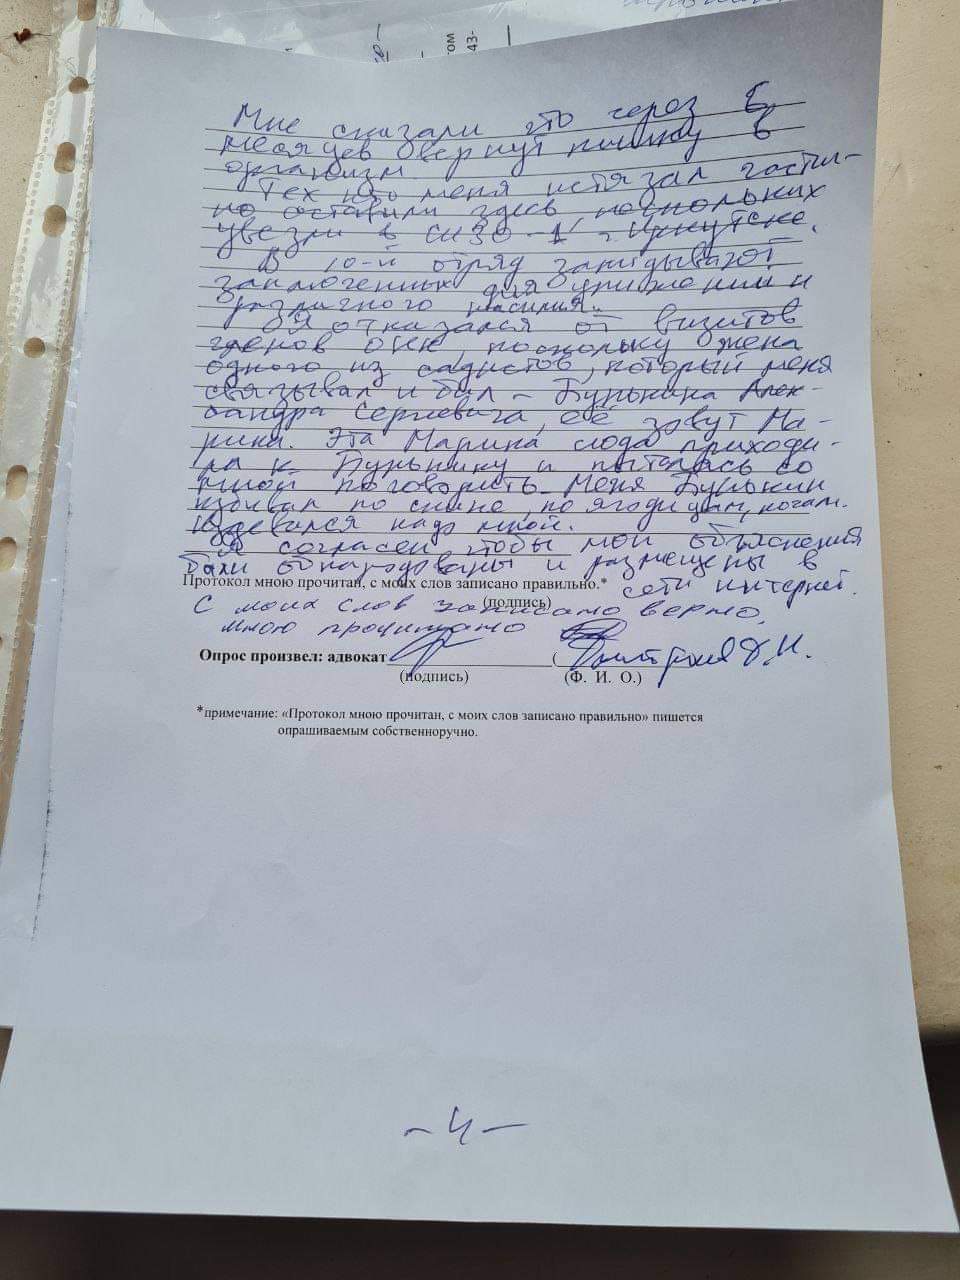 Мне сказали что через 6
месяцев вернут кишку в
организм.
Тех кто меня истязал частич-
но оставили здесь, нескольких
увезли в СИЗО-1 г. Иркутска.
В 10-й отряд закидывают
заключенных для унижении и
различного насилия.
Я отказался от визитов
членов ОНК поскольку жена
одного из садистов, который меня
связывал и бил - Бунькина Алек-
сандра Сергеевича, её зовут Ма-
рина. Эта Марина сюда приходи-
ла к Бунькину и пыталась со
мной поговорить. Меня Бунькин
избивал по спине, по ягодицам, ногам.
Издевался надо мной.
Я согласен чтобы мои объяснения
были обнародованы и размещены в
сети интернет.
Протокол мною прочитан, с моих слов записано правильно.*
(подпись)
С моих слов записано верно,
мною прочитано
Опрос произвел: адвокат (
(подпись) (Ф. И. О.)
*примечание: «Протокол мною прочитан, с моих слов записано правильно» пишется
опрашиваемым собственноручно.
-4-